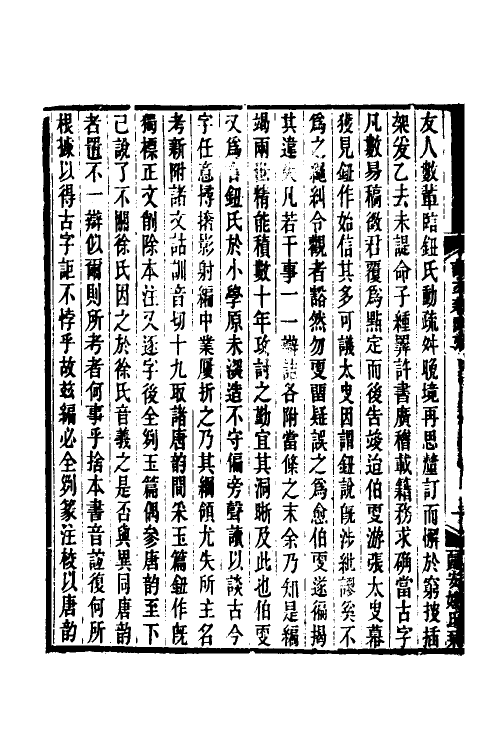 友人數輩臨鈕氏動疏舛晚境再思釐訂而懈於窮搜插
架爰乙去未諟命子種羅許書廣稽載籍務求确當古字
凡數易稿徵君覆為點定而後告竣迨伯雯游張太叟幕
獲見鈕作始信其多可議太叟因謂鈕說既涉紕謬奚不
為之繩糾令觀者豁然勿雯留疑誤之為愈伯雯遂徧揭
其違失凡若干事一一辯詰各附當條之末余乃知是編
竭兩世精能積數十年攷討之勤宜其洞晰及此也伯雯
又為言鈕氏於小學原未深造不守偏旁聲讀以談古今
字任意撏撦影射編中業屢折之乃其綱領尤失所主名
考新附諸文詁訓音切十九取諸唐韵間采玉篇鈕作既
獨標正文削除本注又逐字後全列玉篇偶參唐韵至下
己說了不關徐氏因之於徐氏音義之是否與異同唐韵
者置不一辯似爾則所考者何事乎捨本書音誼復何所
根據以得古字詎不悖乎故茲編必全列篆注校以唐韵